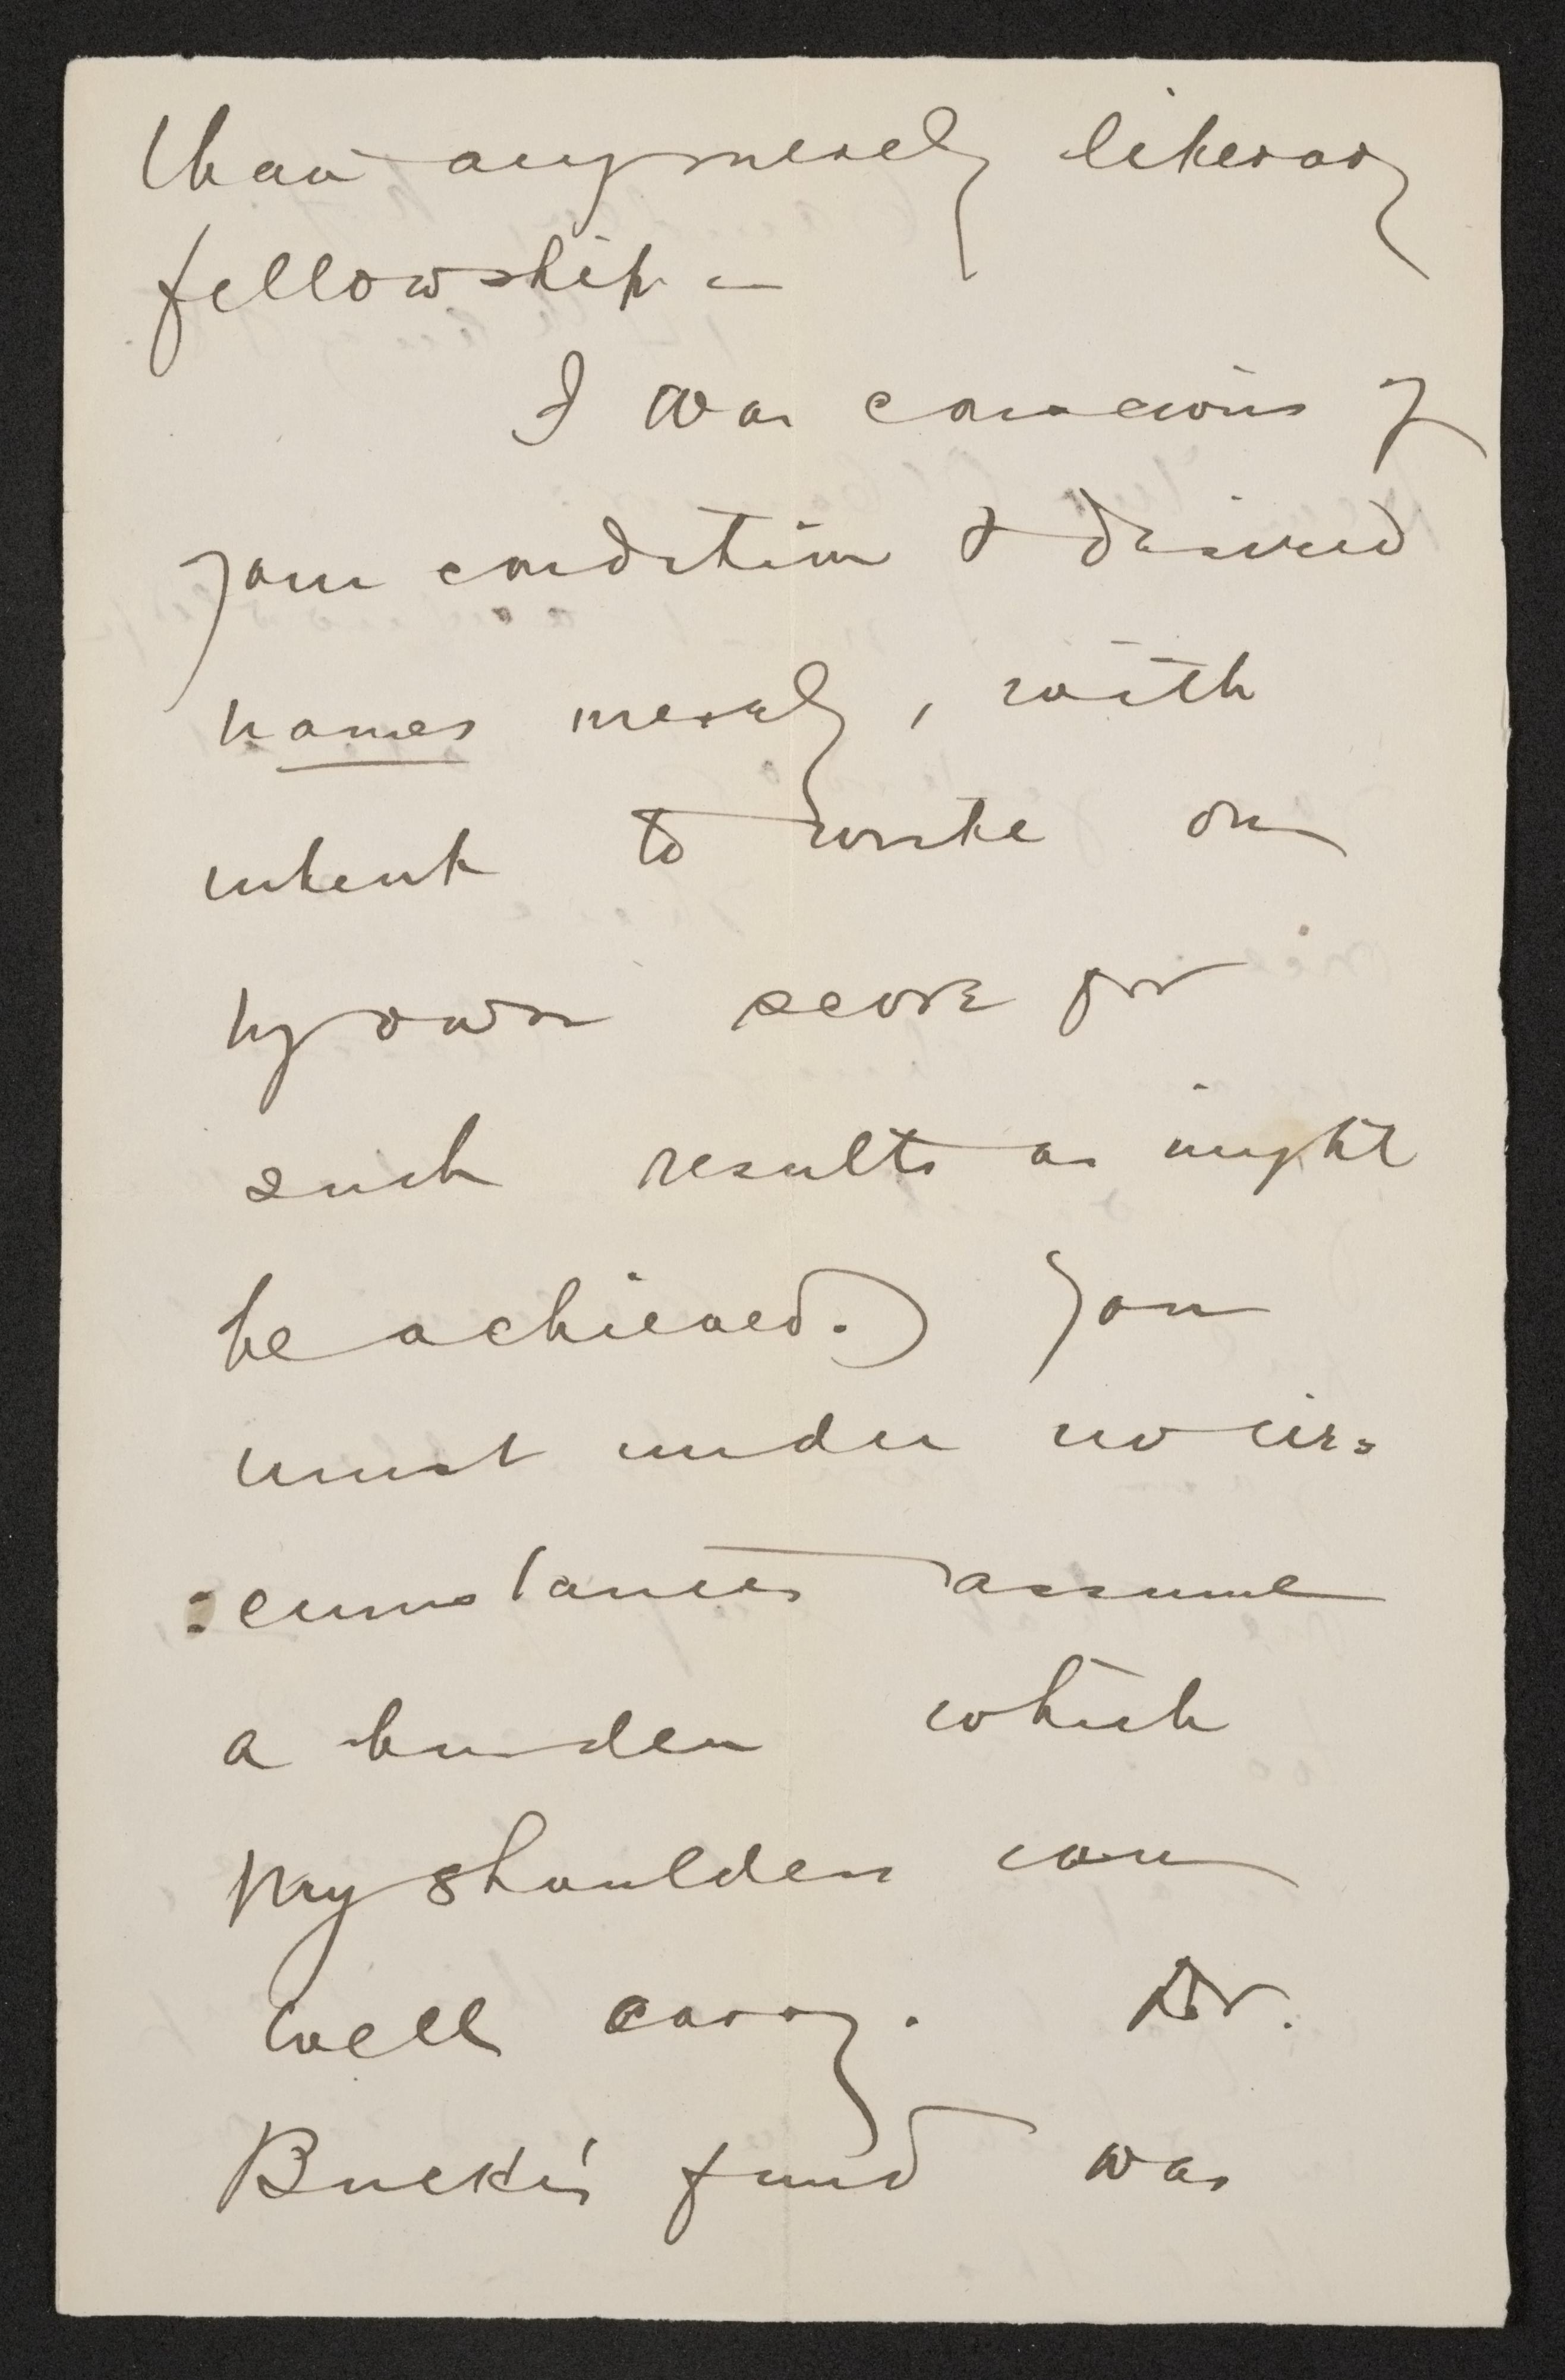 than any merely literary
fellowship —
I was conscious of
your condition & desired
names merely, with
intent to write on
my own score for
such results as might
be achieved.) You
must under no cir=
=cumstances assume
a burden which
my shoulders can
well carry. Dr.
Bucke's fund was